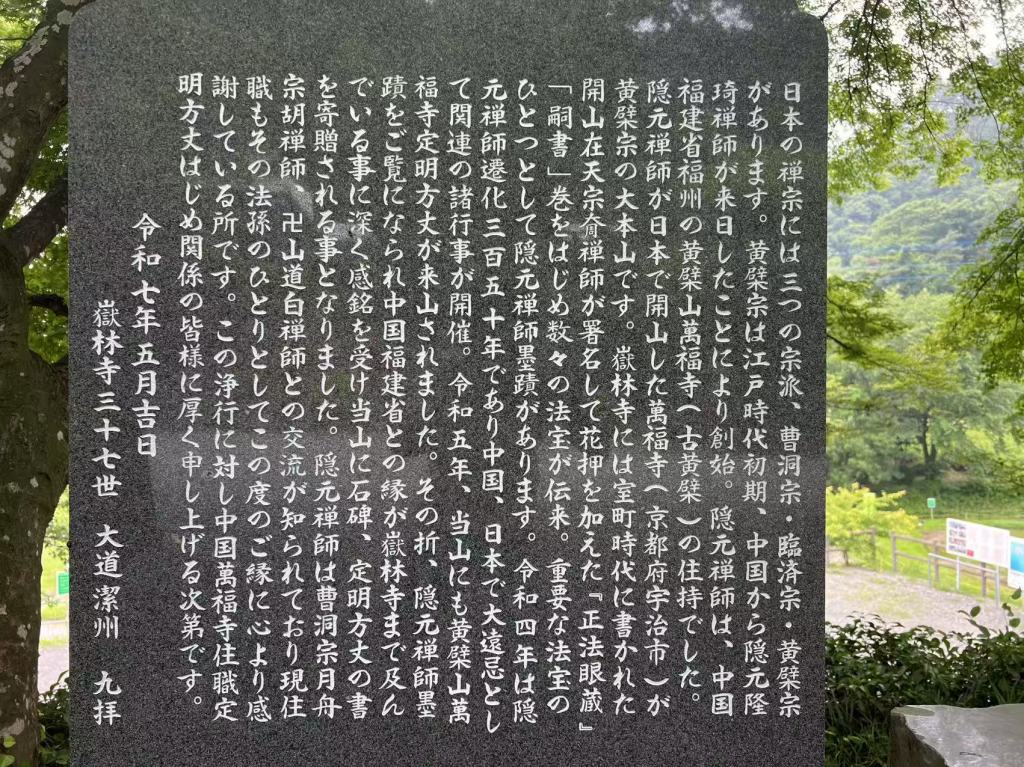 日本の禅宗には三つの宗派、曹洞宗・臨済宗・黄檗宗
があります。黄檗宗は江戸時代初期、中国から隠元隆
琦禅師が来日したことにより創始。隠元禅師は、中国
福建省福州の黄檗山萬福寺(古黄檗)の住持でした。
隠元禅師が日本で開山した萬福寺(京都府宇治市)が
黄檗宗の大本山です。嶽林寺には室町時代に書かれた
開山在天宗奝禅師が署名して花押を加えた『正法眼蔵』
「嗣書」巻をはじめ数々の法宝が伝来。重要な法宝の
ひとつとして隠元禅師墨蹟があります。令和四年は隠
元禅師遷化三百五十年であり中国、日本で大遠忌とし
て関連の諸行事が開催。令和五年、当山にも黄檗山萬
福寺定明方丈が来山されました。その折、隠元禅師墨
蹟をご覧になられ中国福建省との縁が嶽林寺まで及ん
でいる事に深く感銘を受け当山に石碑、定明方丈の書
を寄贈される事となりました。隠元禅師は曹洞宗月舟
宗胡禅師、卍山道白禅師との交流が知られており現住
職もその法孫のひとりとしてこの度のご縁に心より感
謝している所です。この浄行に対し中国萬福寺住職定
明方丈はじめ関係の皆様に厚く申し上げる次第です。
令和七年五月吉日
嶽林寺三十七世 大道潔州 九拝